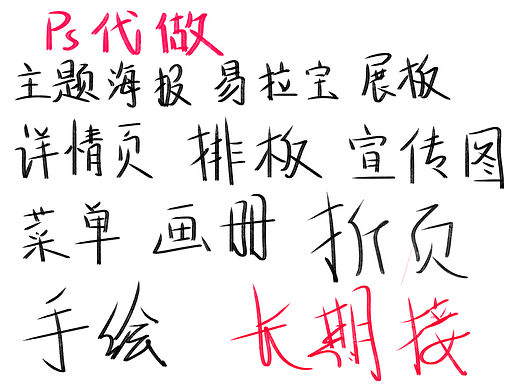 Ps代做
主题海报 易拉宝 展板
详情页 排板 宣传图
菜单 画册 折页
手绘 长期接